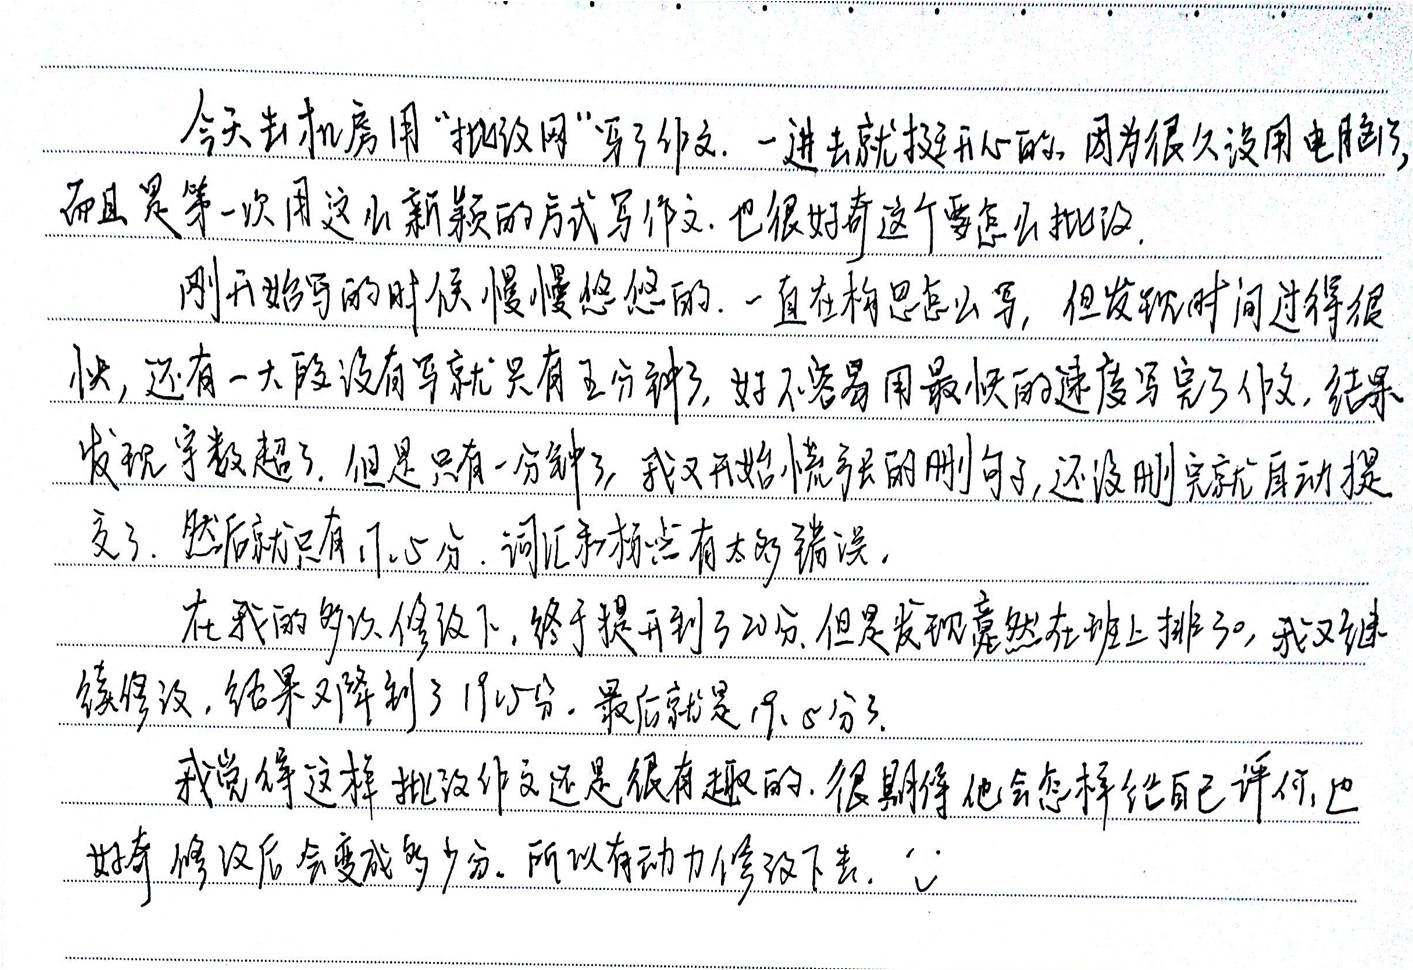 今天去机房用“批改网”写了作文.一进去就挺开心的。因为很久没用电脑了,
而且是第一次用这么新颖的方式写作文.也很好奇这个要怎么批改.
刚开始写的时候慢慢悠悠的.一直在构思怎么写,但发现时间过得很
快,还有一大段没有写就只有五分钟了,好不容易用最快的速度写完了作文,结果
发现字数超了.但是只有一分钟了,我又开始慌张的删句子,还没删完就自动提
交了.然后就只有17.5分.词汇和标点有太多错误.
在我的多次修改下,终于提升到了20分.但是发现竟然在班上排30,我又继
续修改,结果又降到了19.5分.最后就是19.5分了.
我觉得这样批改作文还是很有趣的.很期待他会怎样给自己评价,也
好奇修改后会变成多少分。所以有动力修改下去.